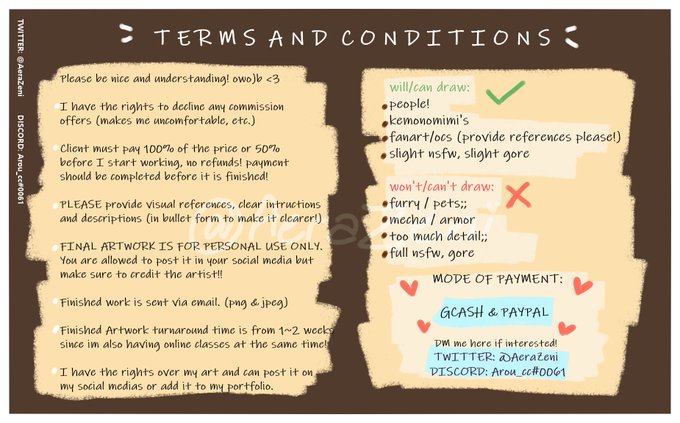 TERMS AND CONDITIONS
TWITTER: @AeraZeni
DISCORD: Arou_cc#0061
Please be nice and understanding! owo)b <3
I have the rights to decline any commission
offers (makes me uncomfortable, etc.)
Client must pay 100% of the price or 50%
before I start working, no refunds! payment
should be completed before it is finished!
PLEASE provide visual references, clear intructions
and descriptions (in bullet form to make it clearer!)
FINAL ARTWORK IS FOR PERSONAL USE ONLY.
You are allowed to post it in your social media but
make sure to credit the artist!!
Finished work is sent via email. (png & jpeg)
Finished Artwork turnaround time is from 1~2 weeks
since im also having online classes at the same time!
I have the rights over my art and can post it on
my social medias or add it to my portfolio.
will/can draw:
people!
kemonomimi's
fanart/ocs (provide references please!)
slight nsfw, slight gore
won't/can't draw:
furry / pets;;
mecha / armor
too much detail;;
full nsfw, gore
MODE OF PAYMENT:
GCASH & PAYPAL
DM me here if interested!
TWITTER: @AeraZeni
DISCORD: Arou_cc#0061
@AeraZeni